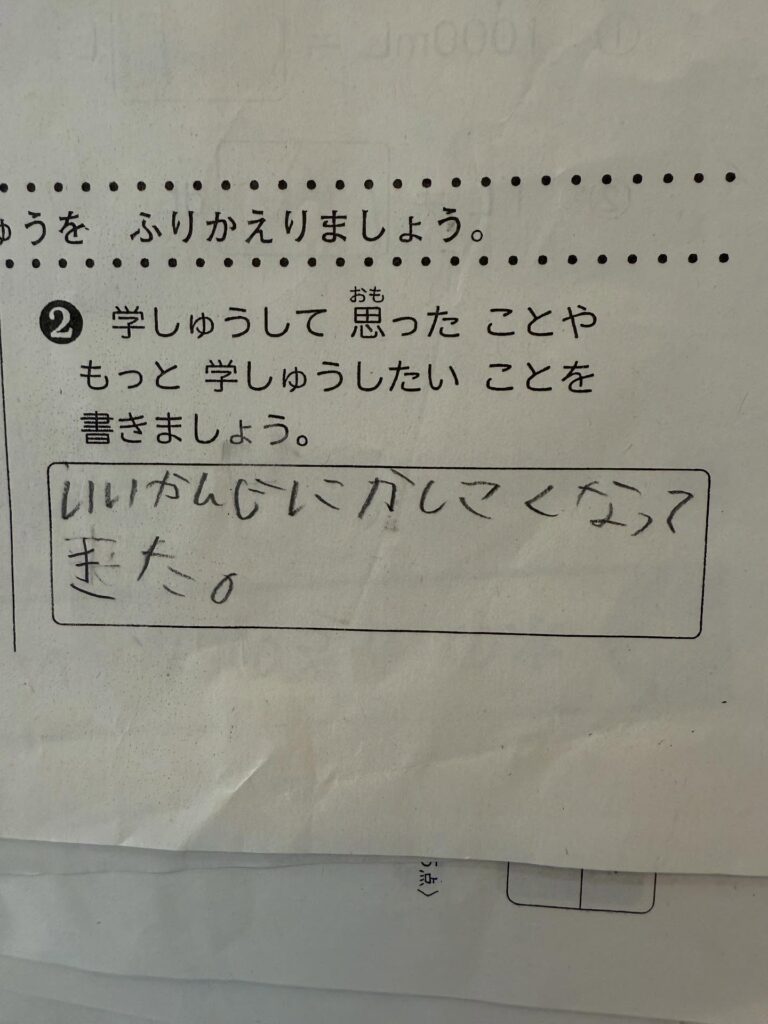 ゅうを ふりかえりましょう。
❷ 学しゅうして 思った ことや
おも
もっと 学しゅうしたい ことを
書きましょう。
いいかんじにかしこくなって
きた。
5点〉